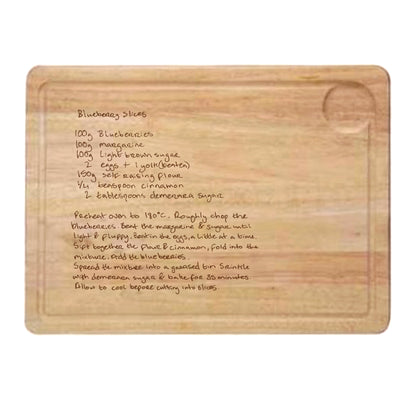 Blueberry Slices
100g Blueberries
100g margarine
100g Light brown sugar
2 eggs + 1 yolk (beaten)
150g self raising flour
1/4 teaspoon cinnamon
2 tablespoons demerara sugar
Preheat oven to 180°C. Roughly chop the
blueberries. Beat the margarine & sugar until
light & fluffy. Beat in the eggs, a little at a time.
Sift together the flour & cinnamon, fold into the
mixture. Add the blueberries
Spread the mixture into a greased tin. Sprinkle
with demerara sugar & bake for 35 minutes.
Allow to cool before cutting into slices